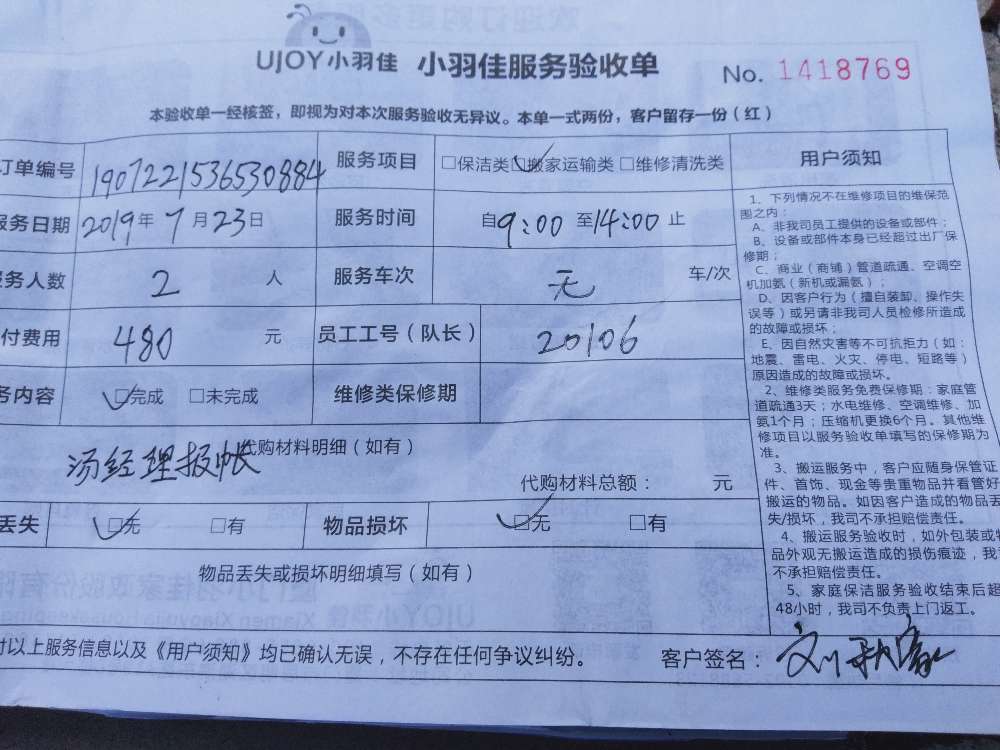 UJOY小羽佳 小羽佳服务验收单 No. 1418769
本验收单一经核签，即视为对本次服务验收无异议。本单一式两份，客户留存一份（红）
订单编号 1907221536530884 服务项目 □保洁类 □搬家运输类 □维修清洗类
服务日期 2019年7月23日 服务时间 自9:00至14:00止
务人数 2 人 服务车次 无 车/次
付费用 480 元 员工工号（队长） 20106
务内容 □完成 □未完成 维修类保修期
代购材料明细（如有）
汤经理报帐
代购材料总额： 元
丢失 □无 □有 物品损坏 □无 □有
物品丢失或损坏明细填写（如有）
对以上服务信息以及《用户须知》均已确认无误，不存在任何争议纠纷。 客户签名：
用户须知
1、下列情况不在维修项目的维保范
围之内：
A、非我司员工提供的设备或部件；
B、设备或部件本身已经超过出厂保
修期；
C、商业（商铺）管道疏通、空调空
机加氨（新机或漏氨）；
D、因客户行为（擅自装卸、操作失
误等）或另请非我司人员检修所造成
的故障或损坏；
E、因自然灾害等不可抗拒力（如：
地震、雷电、火灾、停电、短路等）
原因造成的故障或损坏。
2、维修类服务免费保修期：家庭管
道疏通3天；水电维修、空调维修、加
氨1个月；压缩机更换6个月。其他维
修项目以服务验收单填写的保修期为
准。
3、搬运服务中，客户应随身保管证
件、首饰、现金等贵重物品并看管好
搬运的物品。如因客户造成的物品丢
失/损坏，我司不承担赔偿责任。
4、搬运服务验收时，如外包装或物
品外观无搬运造成的损伤痕迹，我
不承担赔偿责任。
5、家庭保洁服务验收结束后超
48小时，我司不负责上门返工。